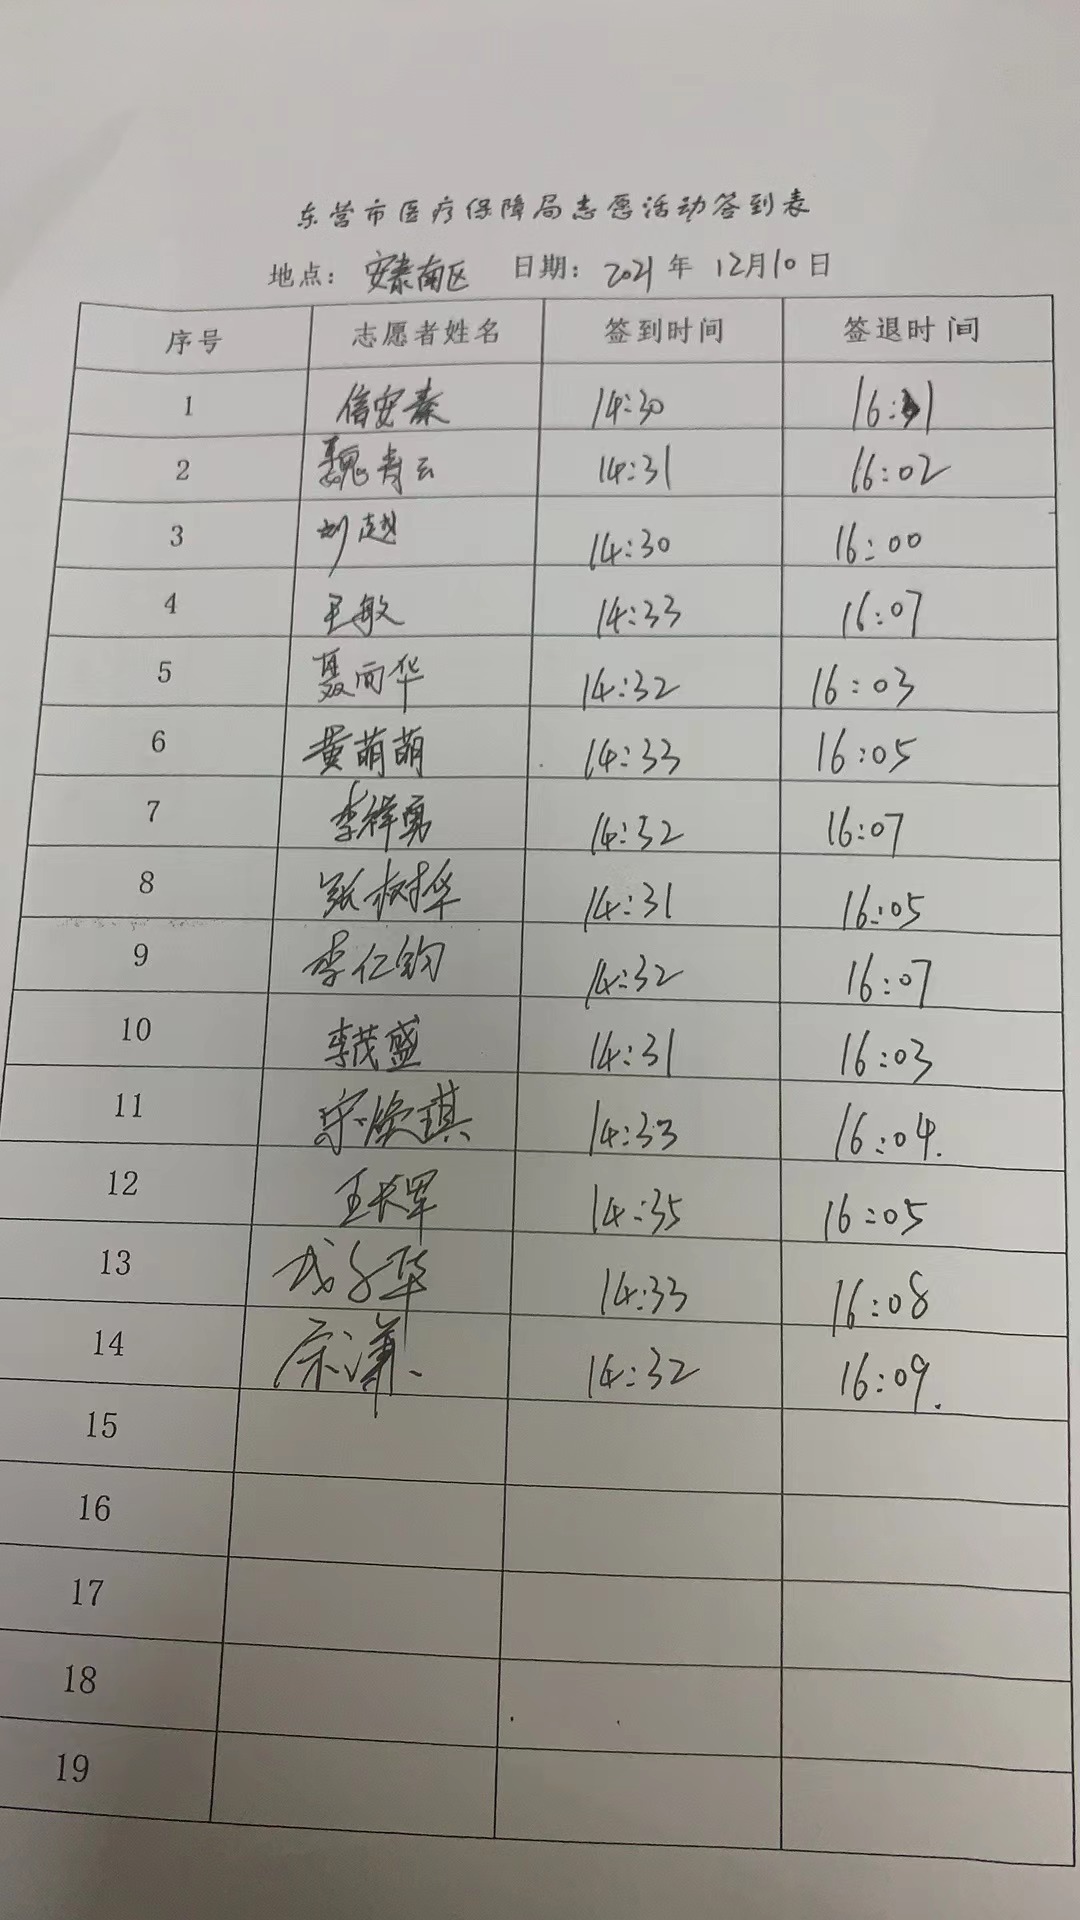 东营市医疗保障局志愿活动签到表
地点：安泰南区 日期：2021年 12月10日
序号 志愿者姓名 签到时间 签退时间
1 信安秦 14:30
2 魏青云 14:31 16:02
3 刘越 14:30 16:00
4 王敏 14:33 16:07
5 聂丽华 14:32 16:03
6 黄萌萌 14:33 16:05
7 李祥勇 14:32 16:07
8 张树华 14:31 16:05
9 李仁钧 14:32 16:07
10 李茂盛 14:31 16:03
11 14:33 16:04.
12 王长军 14:35 16:05
13 14:33 16:08
14 14:32 16:09.
15
16
17
18
19